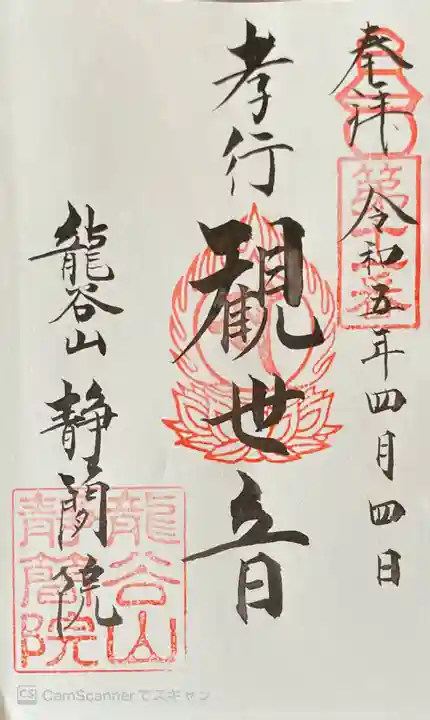 奉拝
令和五年四月四日
孝行
観世音
龍谷山 静簡院
龍谷山
静簡院
CS CamScanner でスキャン